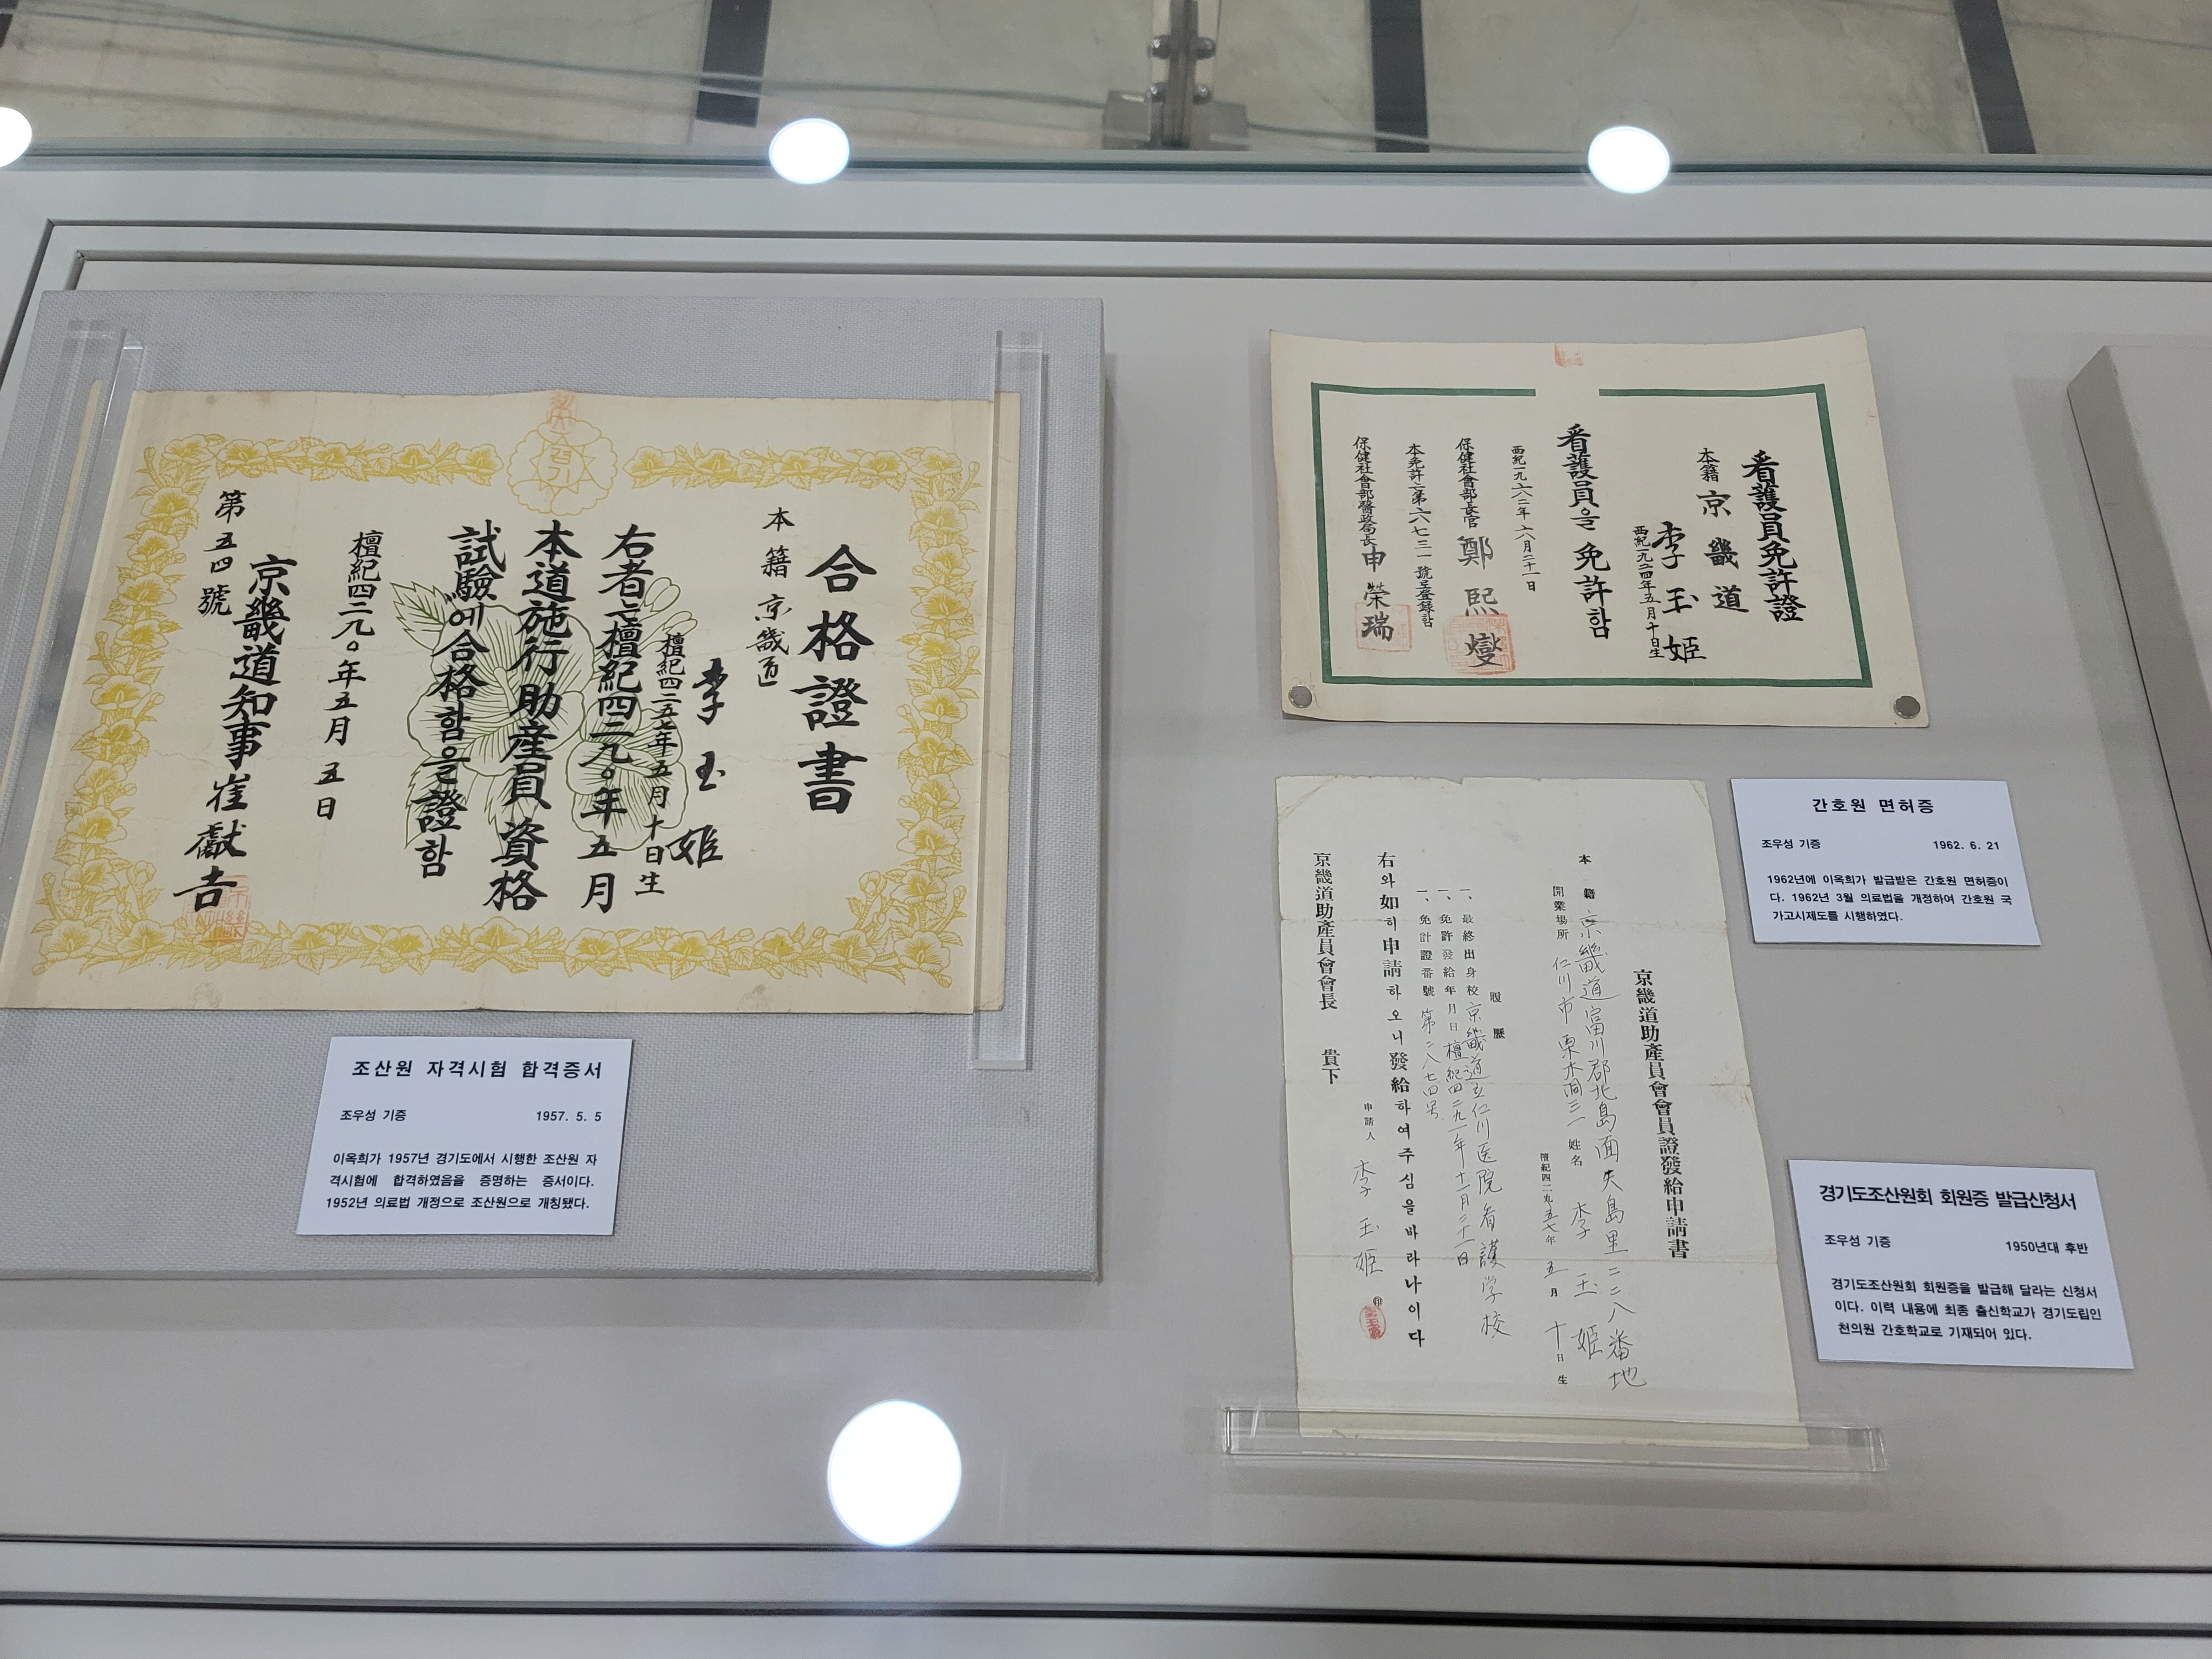 合格證書
本籍 京畿道
李玉姬
檀紀四二五七年五月十日生
右者는檀紀四二九〇年五月
本道施行助産員資格
試驗에合格함을證함
檀紀四二九〇年五月五日
京畿道知事 崔獻吉
第五四號
경기
조산원 자격시험 합격증서
조우성 기증 1957. 5. 5
이옥희가 1957년 경기도에서 시행한 조산원 자
격시험에 합격하였음을 증명하는 증서이다.
1952년 의료법 개정으로 조산원으로 개칭됐다.
看護員免許證
本籍 京畿道
李玉姬
西紀一九二四年五月十日生
看護員을 免許함
西紀一九六二年六月二十一日
保健社會部長官 鄭熙燮
本免許는第六七三一號로登錄함
保健社會部醫政局長 申榮瑞
간호원 면허증
조우성 기증 1962. 6. 21
1962년에 이옥희가 발급받은 간호원 면허증이
다. 1962년 3월 의료법을 개정하여 간호원 국
가고시제도를 시행하였다.
京畿道助產員會會員證發給申請書
本籍 京畿道富川郡北島面矢島里二二八番地
開業場所 仁川市栗木洞三一 姓名 李玉姬
檀紀四二五七年 五月 十日生
履歷
一、最終出身校 京畿道立仁川医院看護学校
一、免許發給年月日 檀紀四二九一年十一月二十一日
一、免許證番號 第二八七四号
右와如히申請하오니發給하여주심을바라나이다
申請人 李玉姬 印
京畿道助產員會會長 貴下
경기도조산원회 회원증 발급신청서
조우성 기증 1950년대 후반
경기도조산원회 회원증을 발급해 달라는 신청서
이다. 이력 내용에 최종 출신학교가 경기도립인
천의원 간호학교로 기재되어 있다.